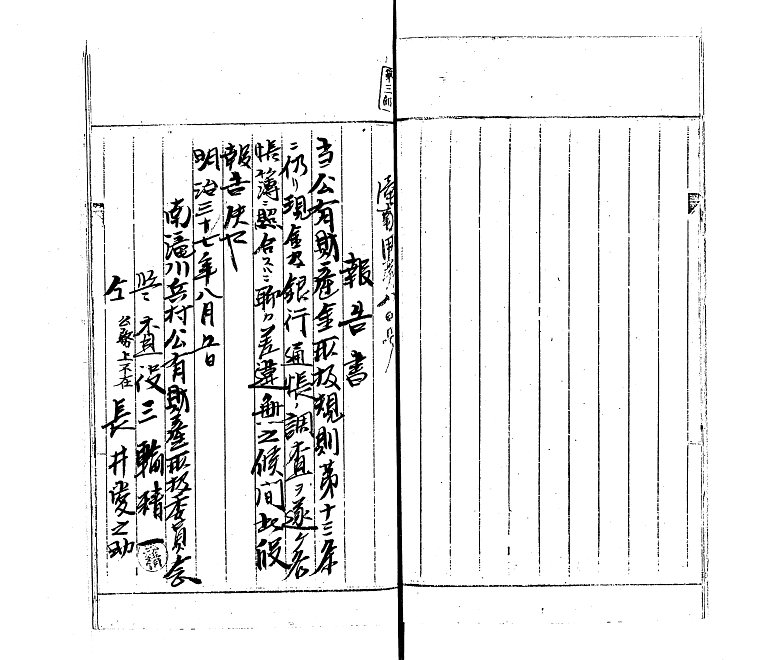 第三部
報告書
当公有財産金取扱規則第十三条
ニ仍リ現金及銀行通帳ノ調査ヲ遂ケ
帳簿ニ照合スルニ聊カ差違無之候間此段
報告候也
明治三十七年八月五日
南湧川兵村公有財産取扱委員会
監査役三輪積一
仝 公務上不在 長井愛之助